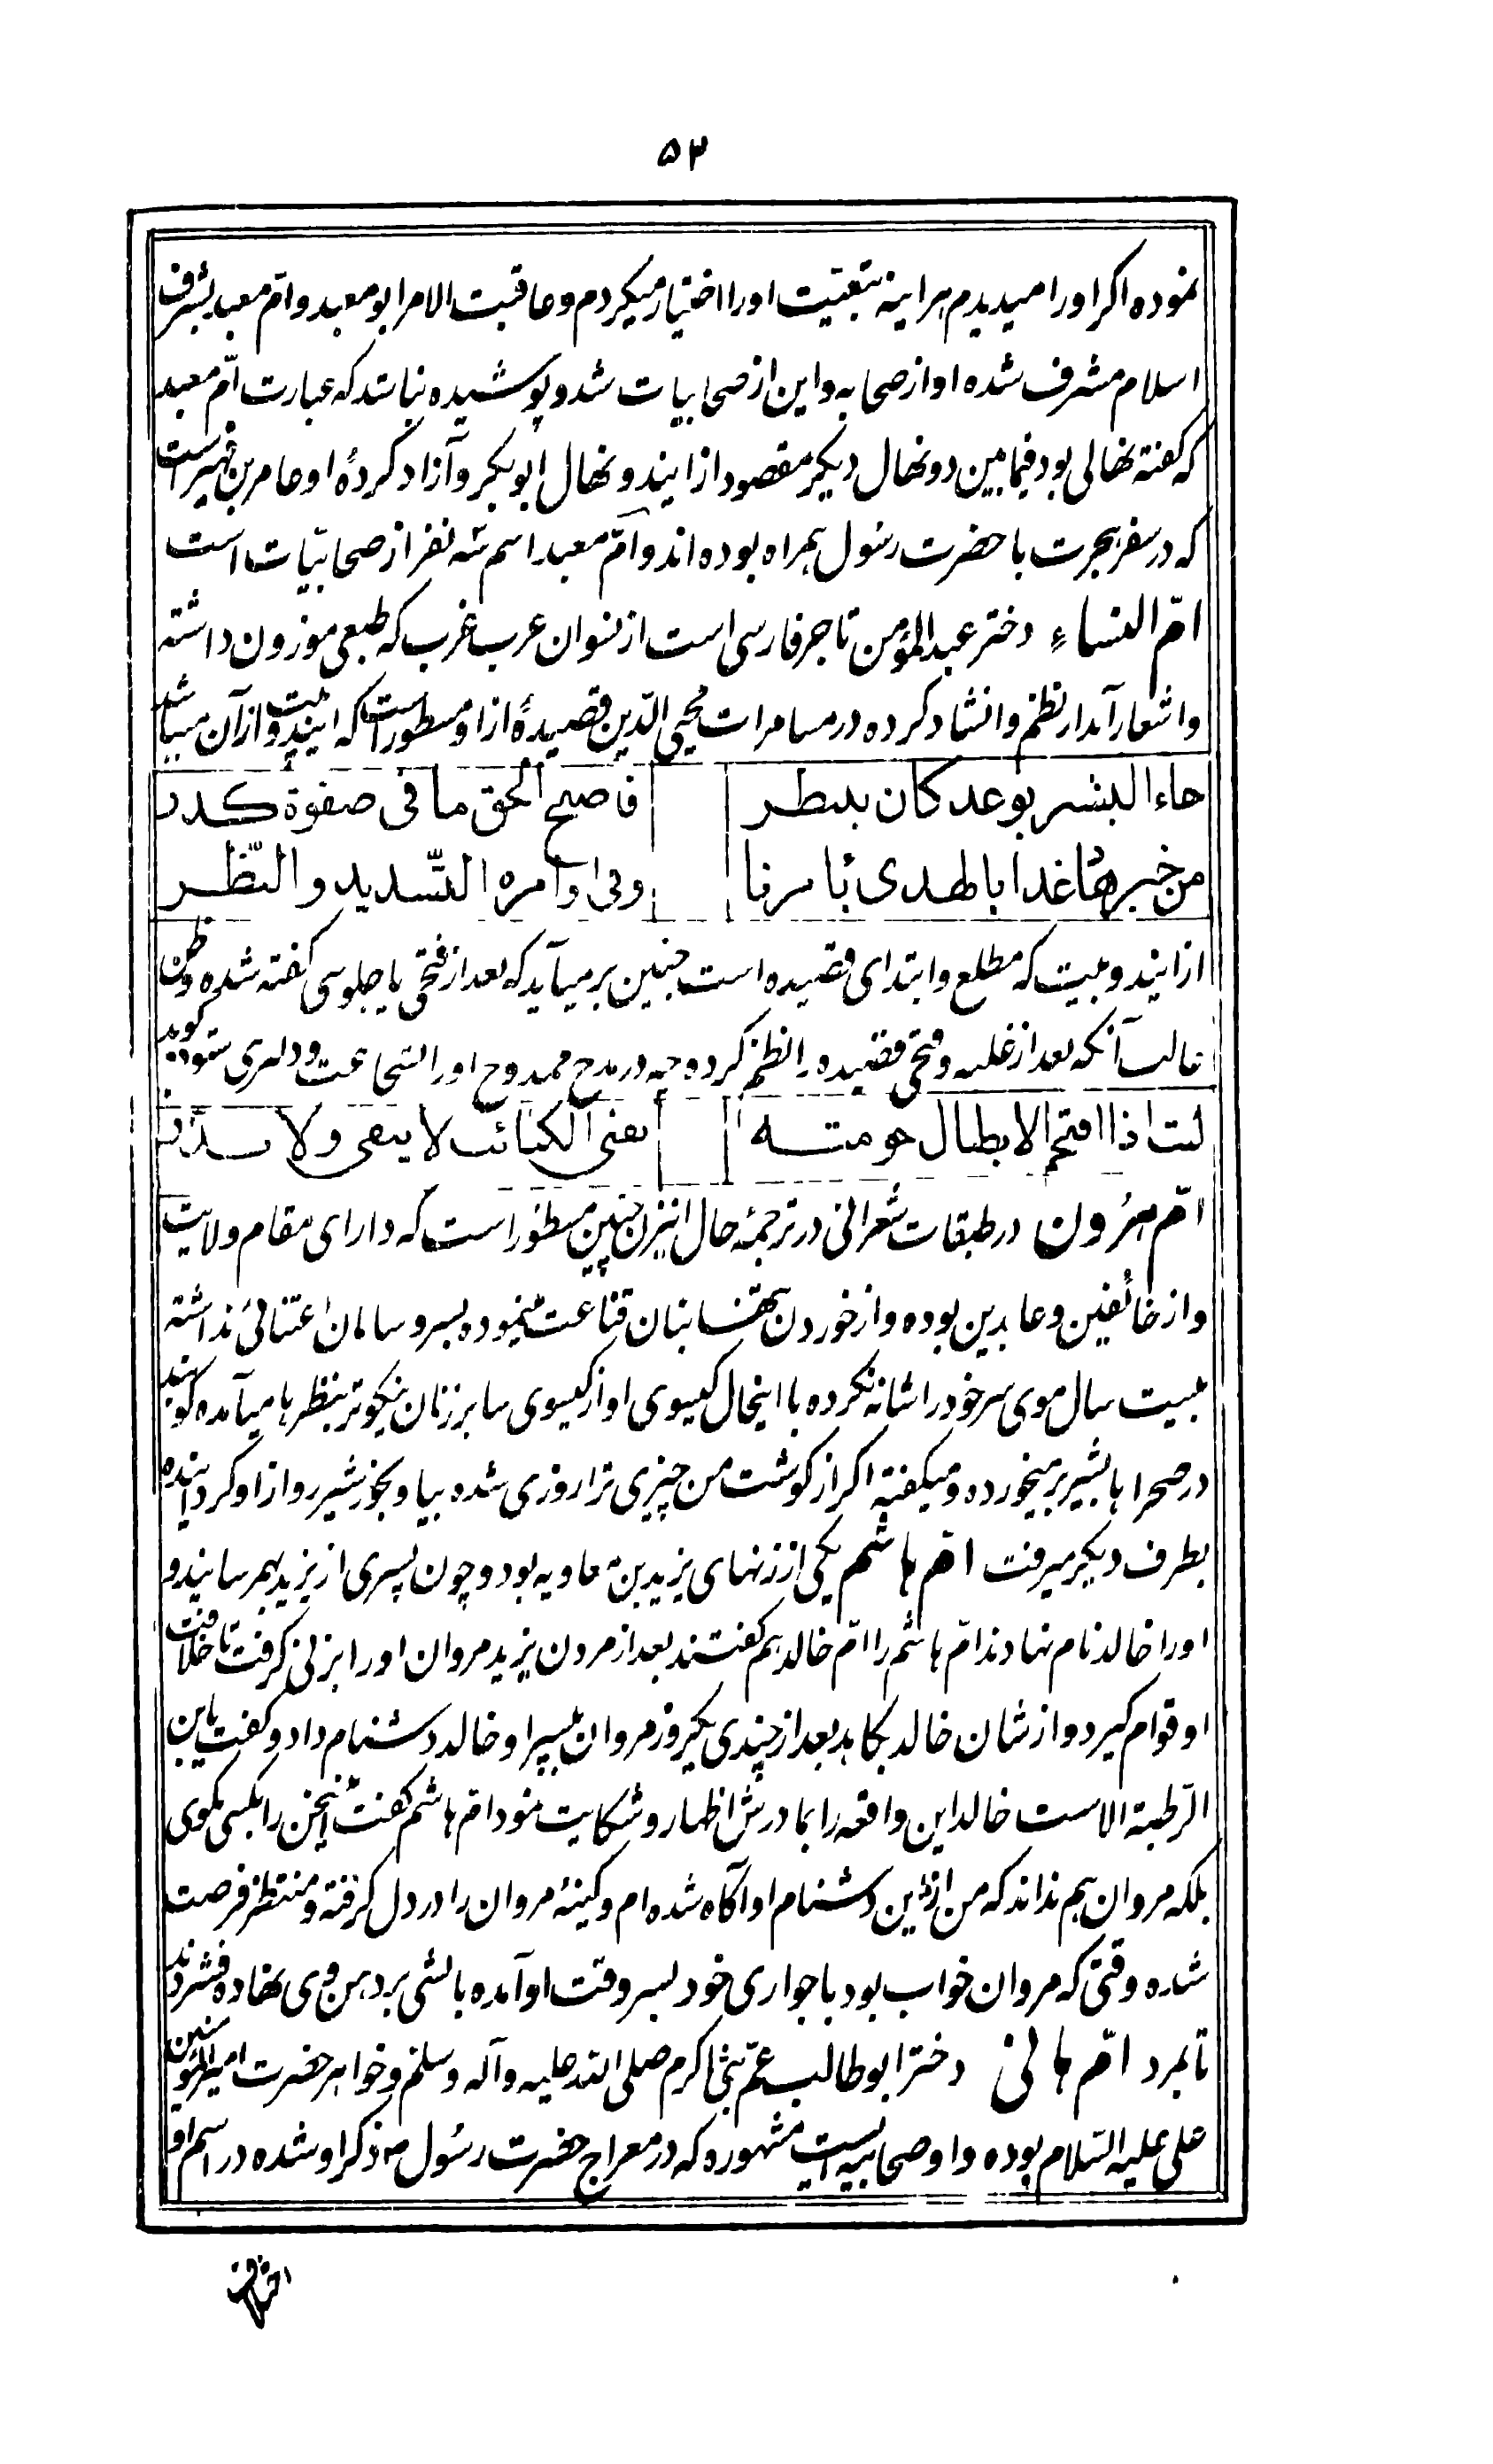 ۵۳
نموده اکر اورا میدیدم هراینه تبعیّت اورا اختیار میکردم و عاقبت الامر ابو معبد و امّ معبد بشرف
اسلام مشرف شده او از صحابه و این از صحابیات شد و پوشیده نباشد که عبارت امّ معبد
که کفته نهالی بود فیما بین دو نهال دیکر مقصود از ایندو نهال ابو بکر و آزاد کردهٔ او عامر بن فهیر است
که در سفر هجرت با حضرت رسول همراه بوده اند و امّ معبد اسم سه نفر از صحابیّات است
امّ النساء دختر عبد المؤمن تاجر فارسی است از نسوان عرب غرب که طبعی موزون داشته
و اشعار آبدار نظم و انشاد کرده در مسامرات محیی الدّین قصیدهٔ از او مسطور است که ایندو بیت از آن میباشد
جاء البشیر بوعد کان ینتظر فاصبح الحق ما فی صفوة کدر
من خیر هاغدا بالهدی یأمرنا وفی اوامره التّسدید والنّظر
از ایندو بیت که مطلع و ابتدای قصیده است چنین برمیآید که بعد از فتحی یا جلوسی کفته شده و ظن
غالب آنکه بعد از غلبه و فتحی قصیده را نظم کرده چه در مدح ممدوح او را بشجاعت و دلیری ستوده کوید
لیث اذا اقتحم الابطال حومته یفنی الکتائب لا یبقی ولا یذر
امّ هرون در طبقات شعرانی در ترجمهٔ حال اینزن چنین مسطور است که دارای مقام ولایت
و از خائفین و عابدین بوده و از خوردن بتنها بنان قناعت مینموده بسر و سامان اعتنائی نداشته
بیست سال موی سر خود را شانه نکرده با اینحال کیسوی او از کیسوی سایر زنان نیکوتر بنظرها میآمده کویند
در صحرا ها بشیر برمیخورده و میکفته اکر از کوشت من چیزی ترا روزی شده بیا و بخور شیر رو از او کردانیده
بطرف دیکر میرفت امّ هاشم یکی از زنهای یزید بن معاویه بود و چون پسری از یزید بهمرسانید و
اورا خالد نام نهادند امّ هاشم را امّ خالد هم کفتند بعد از مردن یزید مروان اورا بزنی کرفت تا خلافت
او قوام کیرد و از شان خالد بکاهد بعد از چندی یکروز مروان بپسر او خالد دشنام داد و کفت یابن
الرّطبة الاست خالد این واقعه را بمادرش اظهار و شکایت نمود امّ هاشم کفت اینسخن را بکسی مکوی
بلکه مروان هم نداند که من از این دشنام او آکاه شده ام و کینهٔ مروان را در دل کرفته و منتظر فرصت
شده وقتی که مروان خواب بود با جواری خود بسر وقت او آمده بالشی بر دهن وی نهاده فشردند
تا بمرد امّ هانی دختر ابو طالب عمّ نبیّ اکرم صلی الله علیه و آله و سلم و خواهر حضرت امیر المؤمنین
علی علیه السّلام بوده و او صحابیه ایست مشهوره که در معراج حضرت رسول م ذکر او شده در اسم او
اختلاف